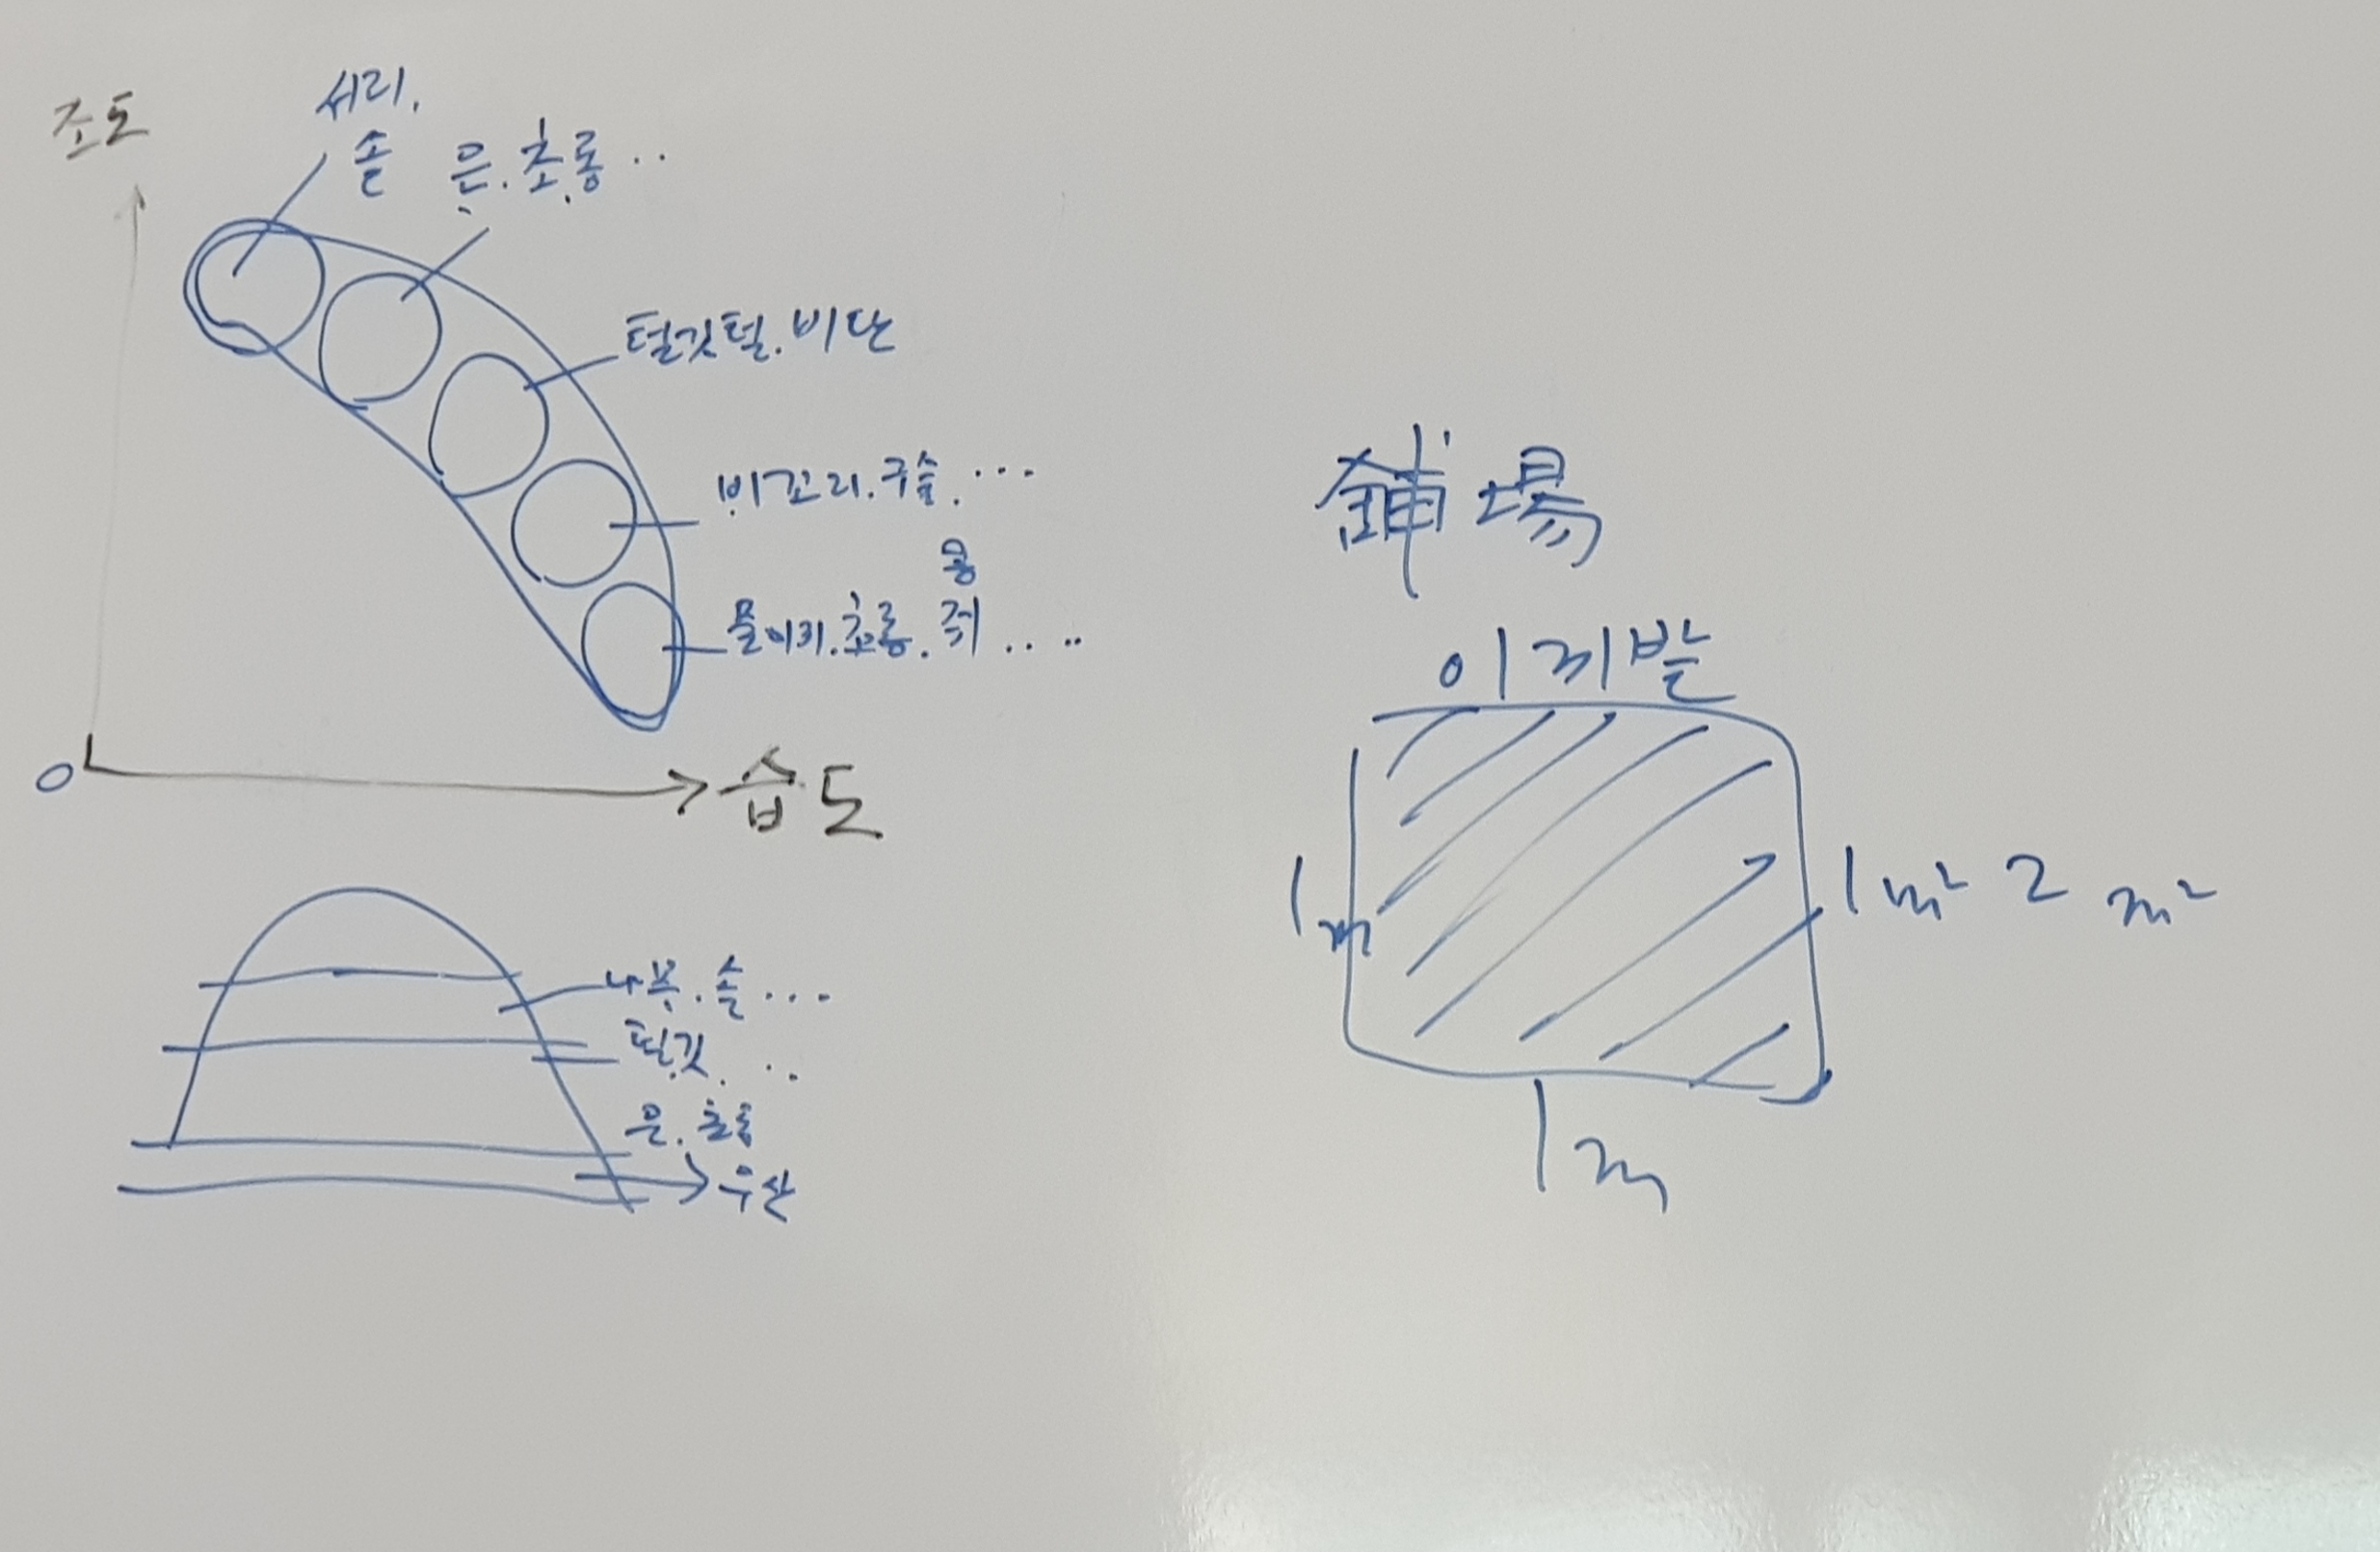 조도
서리.
솔
은.초롱..
털깃털.비단
비꼬리.구슬....
물이끼.초롱.
쥐....
습도
0
나무.솔...
털깃...
은.초롱
우산
鋪場
이끼발
1m
1m² 2 m²
1m